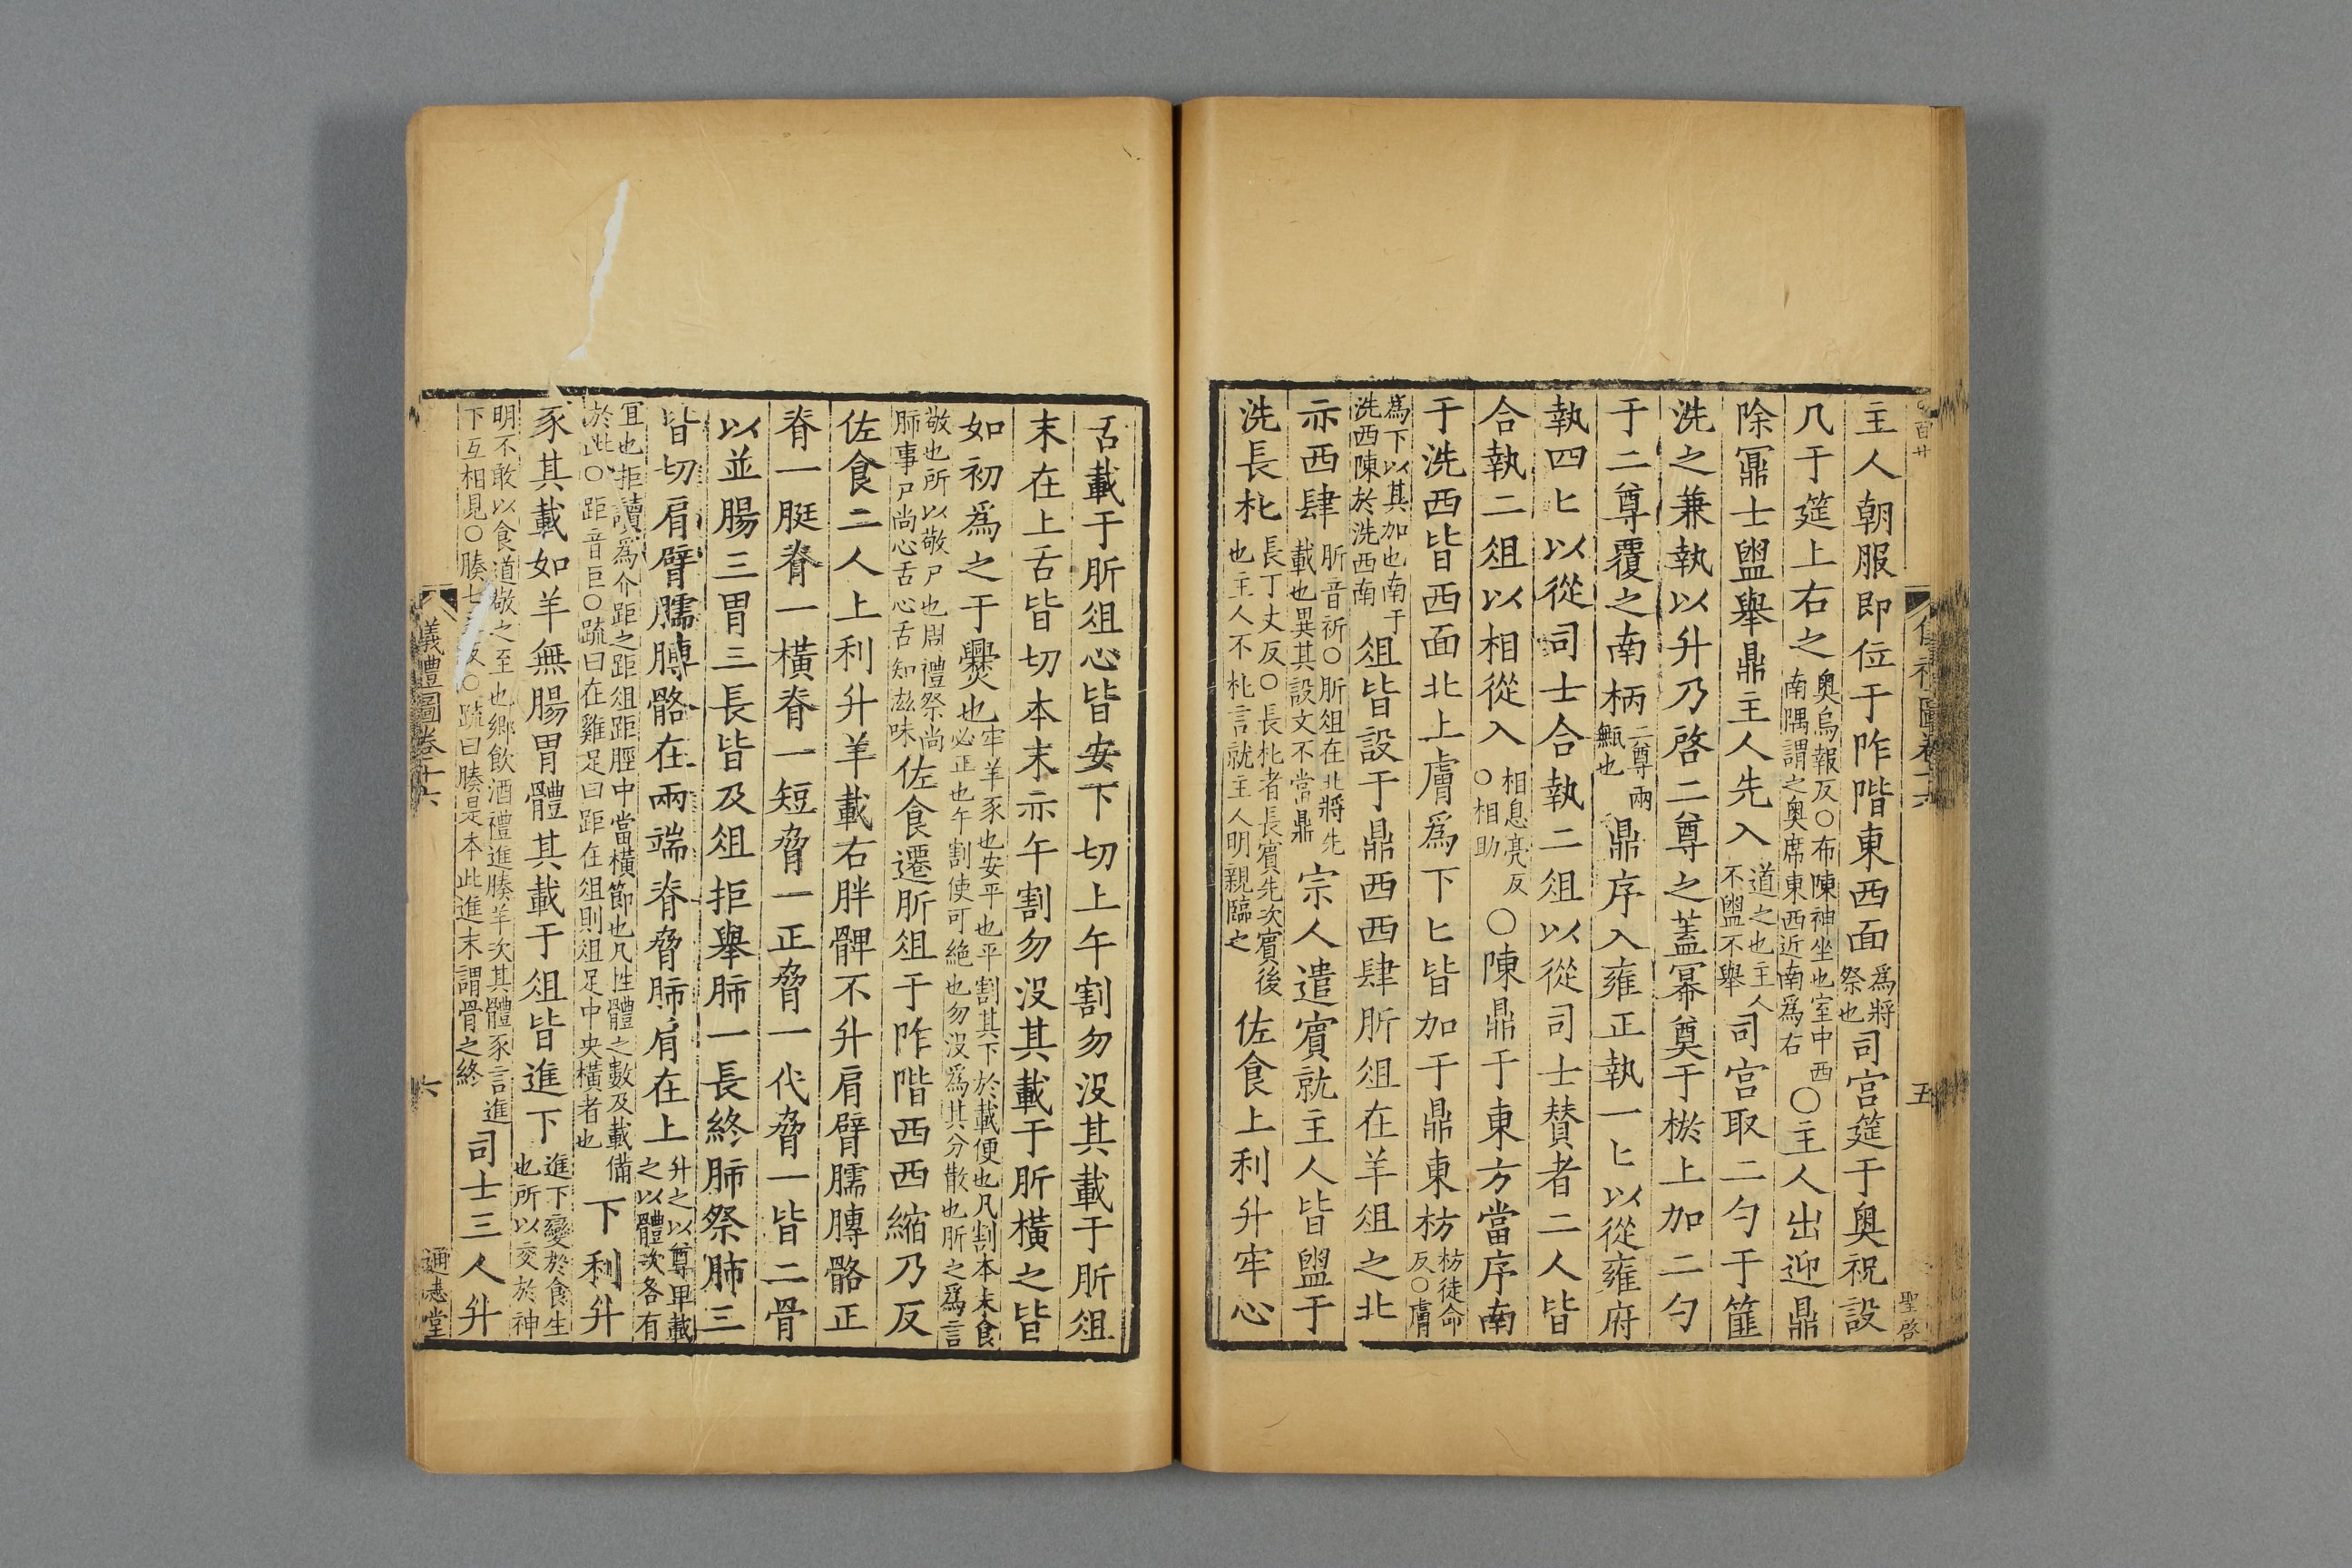 主人朝服即位于阼階東西面為將祭也司宮筵于奧祝設
几于筵上右之奧烏報反○布陳神坐也室中西南隅謂之奧席東西近南為右○主人出迎鼎
除鼏士盥舉鼎主人先入道之也主人不盥不舉司宮取二勺于篚
洗之兼執以升乃啓二尊之蓋冪奠于棜上加二勺
于二尊覆之南柄二尊兩甒也鼎序入雍正執一匕以從雍府
執四匕以從司士合執二俎以從司士賛者二人皆
合執二俎以相從入相息亮反○相助○陳鼎于東方當序南
于洗西皆西面北上膚爲下匕皆加于鼎東枋枋徒命反○膚
爲下以其加也南于洗西陳於洗西南俎皆設于鼎西西肆肵俎在羊俎之北
亦西肆肵音祈○肵俎在北將先載也異其設文不當鼎宗人遣賓就主人皆盥于
洗長朼長丁丈反○長朼者長賓先次賓後也主人不朼言就主人明親臨之佐食上利升牢心
舌載于肵俎心皆安下切上午割勿没其載于肵俎
末在上舌皆切本末亦午割勿没其載于肵橫之皆
如初爲之于爨也牢羊豕也安平也平割其下於載便也凡割本末食必正也午割使可絕也勿没爲其分散也肵之爲言
敬也所以敬尸也周禮祭尚肺事尸尚心舌心舌知滋味佐食遷肵俎于阼階西西縮乃反
佐食二人上利升羊載右胖髀不升肩臂臑膞骼正
脊一脡脊一橫脊一短脅一正脅一代脅一皆二骨
以並腸三胃三長皆及俎拒舉肺一長終肺祭肺三
皆切肩臂臑膞骼在兩端脊脅肺肩在上升之以尊卑載之以體次各有
宜也拒讀爲介距之距俎距脛中當橫節也凡牲體之數及載備於此○距音巨○疏曰在雞足曰距在俎則俎足中央橫者也下利升
豕其載如羊無腸胃體其載于俎皆進下進下變於食生也所以交於神
明不敢以食道敬之至也鄉飲酒禮進腠羊次其體豕言進下互相見○腠七豆反○疏曰腠是本此進末謂骨之終司士三人升
儀禮圖卷十六
五
聖啓
儀禮圖卷十六
六
通志堂